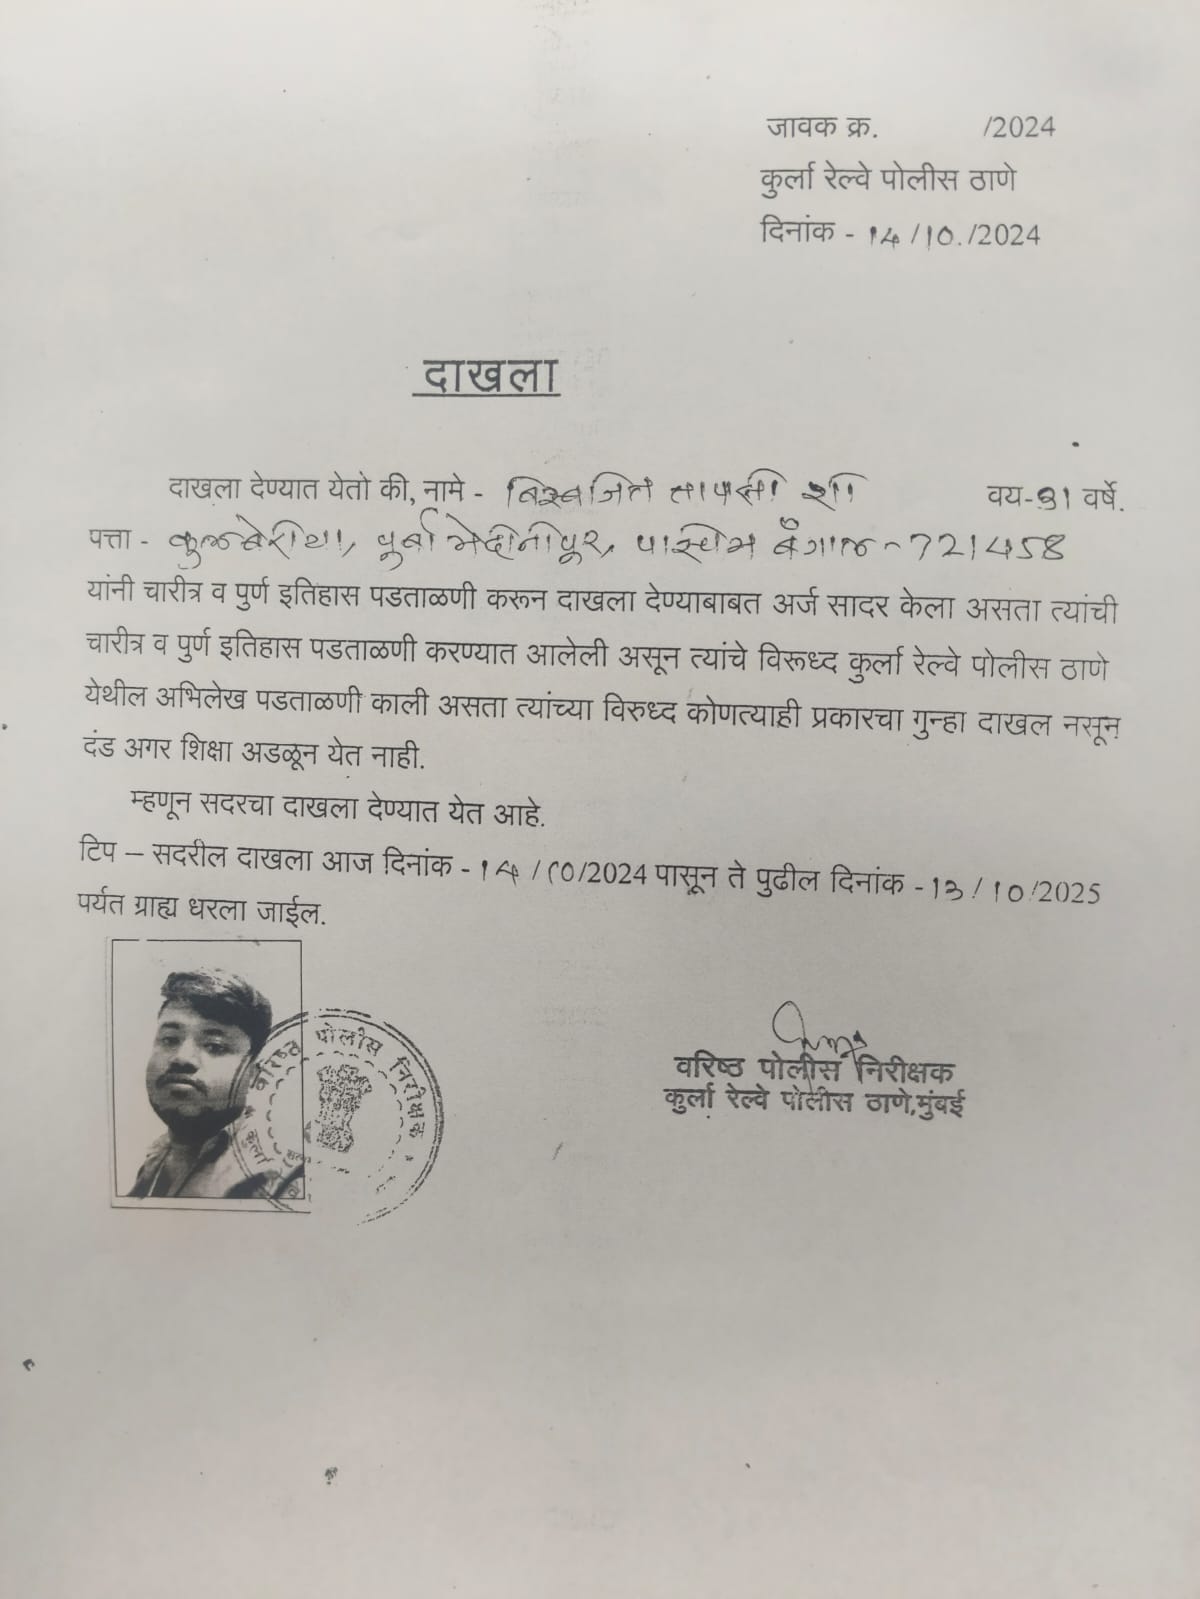 जावक क्र. /2024
कुर्ला रेल्वे पोलीस ठाणे
दिनांक - 14/10./2024
दाखला
दाखला देण्यात येतो की, नामे - बिस्वजित तापसी शॉ वय-31 वर्षे.
पत्ता - कुलबेरीया, पूर्बा मेदीनीपूर, पास्चिम बँगाल - 721458
यांनी चारीत्र व पुर्ण इतिहास पडताळणी करून दाखला देण्याबाबत अर्ज सादर केला असता त्यांची
चारीत्र व पुर्ण इतिहास पडताळणी करण्यात आलेली असून त्यांचे विरूध्द कुर्ला रेल्वे पोलीस ठाणे
येथील अभिलेख पडताळणी काली असता त्यांच्या विरुध्द कोणत्याही प्रकारचा गुन्हा दाखल नसून
दंड अगर शिक्षा अडळून येत नाही.
म्हणून सदरचा दाखला देण्यात येत आहे.
टिप – सदरील दाखला आज दिनांक - 14/10/2024 पासून ते पुढील दिनांक - 13/10/2025
पर्यत ग्राह्य धरला जाईल.
वरिष्ठ पोलीस निरीक्षक
कुर्ला रे
वरिष्ठ पोलीस निरीक्षक
कुर्ला रेल्वे पोलीस ठाणे,मुंबई